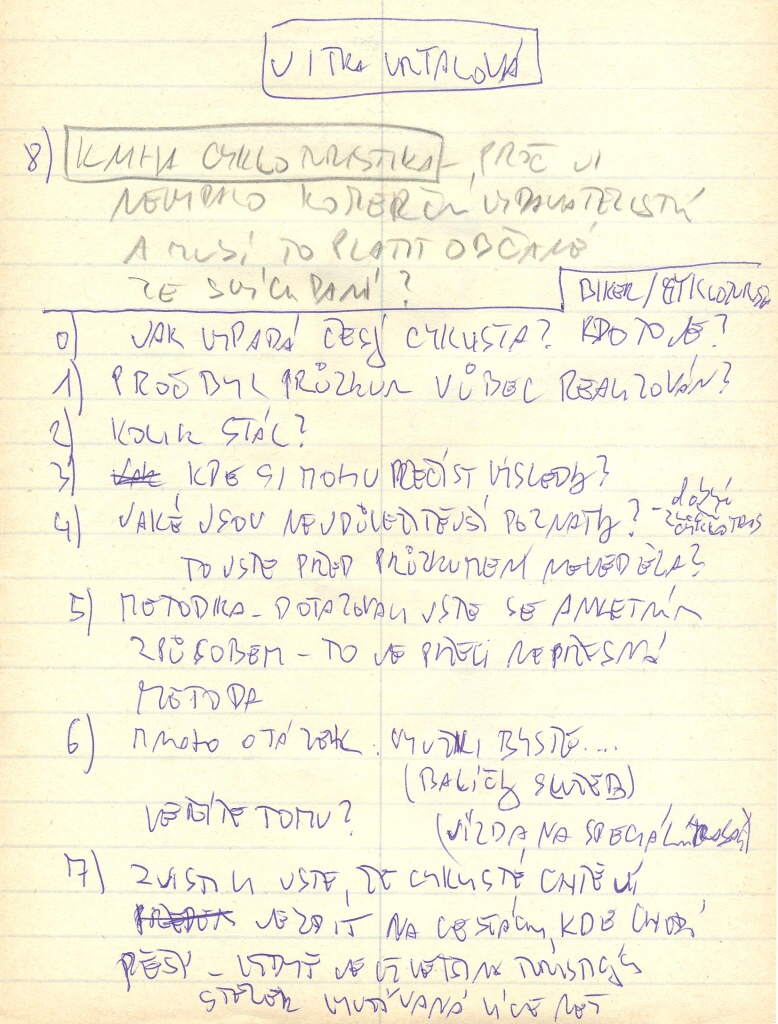 JITKA VRTALOVÁ
8) KNIHA CYKLOTURISTIKA - PROČ JI
NEVYDALO KOMERČNÍ VYDAVATELSTVÍ
A MUSÍ TO PLATIT OBČANÉ
ZE SVÝCH DANÍ?
BIKER/
0) JAK VYPADÁ ČESKÝ CYKLISTA? KDO TO JE?
1) PROČ BYL PRŮZKUM VŮBEC REALIZOVÁN?
2) KOLIK STÁL?
3) JAK KDE SI MOHU PŘEČÍST VÝSLEDKY?
4) JAKÉ JSOU NEJDŮLEŽITĚJŠÍ POZNATKY? -
CYKLOTRAS
TO JSTE PŘED PRŮZKUMEM NEVĚDĚLA?
5) METODIKA - DOTAZOVALI JSTE SE ANKETNÍM
ZPŮSOBEM - TO JE PŘECI NEPŘESNÁ
METODA
6) MNOHO OTÁZEK: VYUŽILI BYSTE....
(BALÍČKY SLUŽEB)
VĚŘÍTE TOMU?
(JÍZDA NA SPECIÁLNÍ
7) ZJISTILI JSTE, ŽE CYKLISTÉ CHTĚJÍ
JEZDIT NA CESTÁCH, KDE CHODÍ
PĚŠÍ - VŽDYŤ JE VĚTŠINA TURISTICKÝCH
STEZEK VYUŽÍVANÁ VÍCE NEŽ